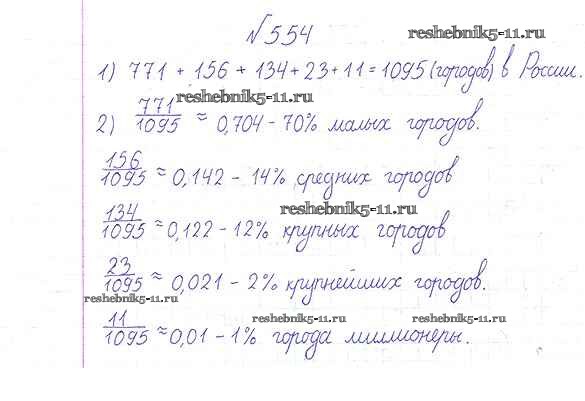 №554
reshebnik5-11.ru
1) 771 + 156 + 134 + 23 + 11 = 1095 (городов) в России.
reshebnik5-11.ru
2) 771/1095 ≈ 0,704 - 70% малых городов.
156/1095 ≈ 0,142 - 14% средних городов
reshebnik5-11.ru
134/1095 ≈ 0,122 - 12% крупных городов
23/1095 ≈ 0,021 - 2% крупнейших городов.
reshebnik5-11.ru
reshebnik5-11.ru reshebnik5-11.ru
11/1095 ≈ 0,01 - 1% города миллионеры.